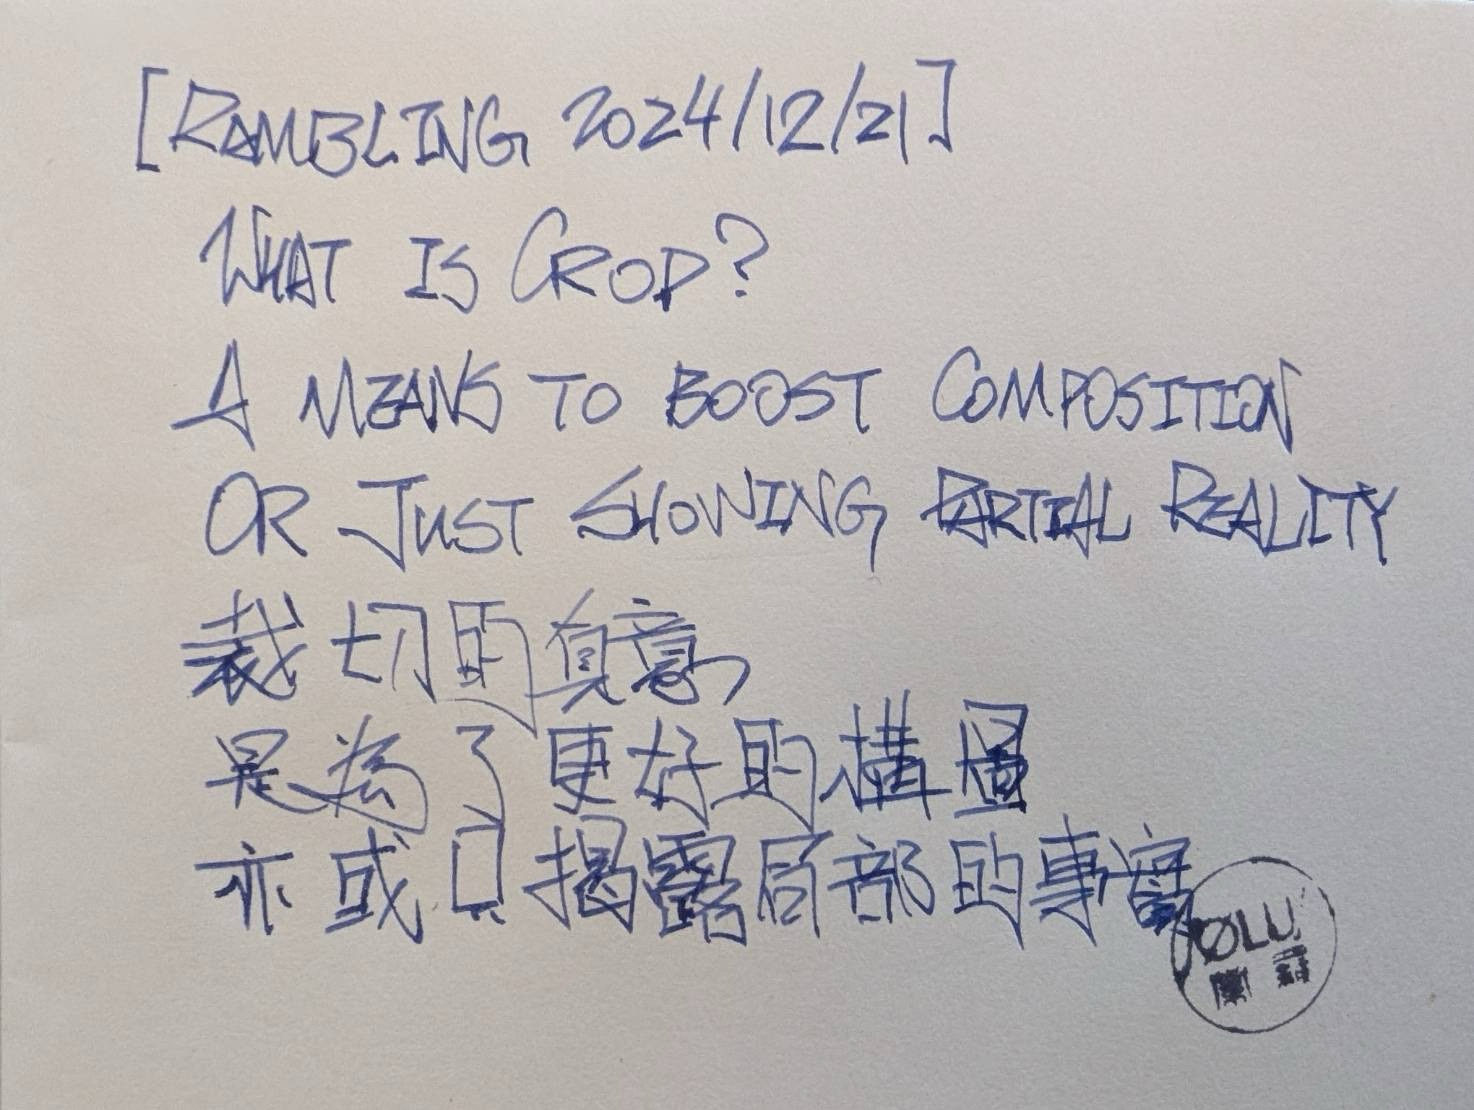 [RAMBLING 2024/12/21]
WHAT IS CROP?
A MEANS TO BOOST COMPOSITION
OR JUST SHOWING PARTIAL REALITY
裁切的真意
是為了更好的構圖
亦或只揭露局部的事實
ØLU